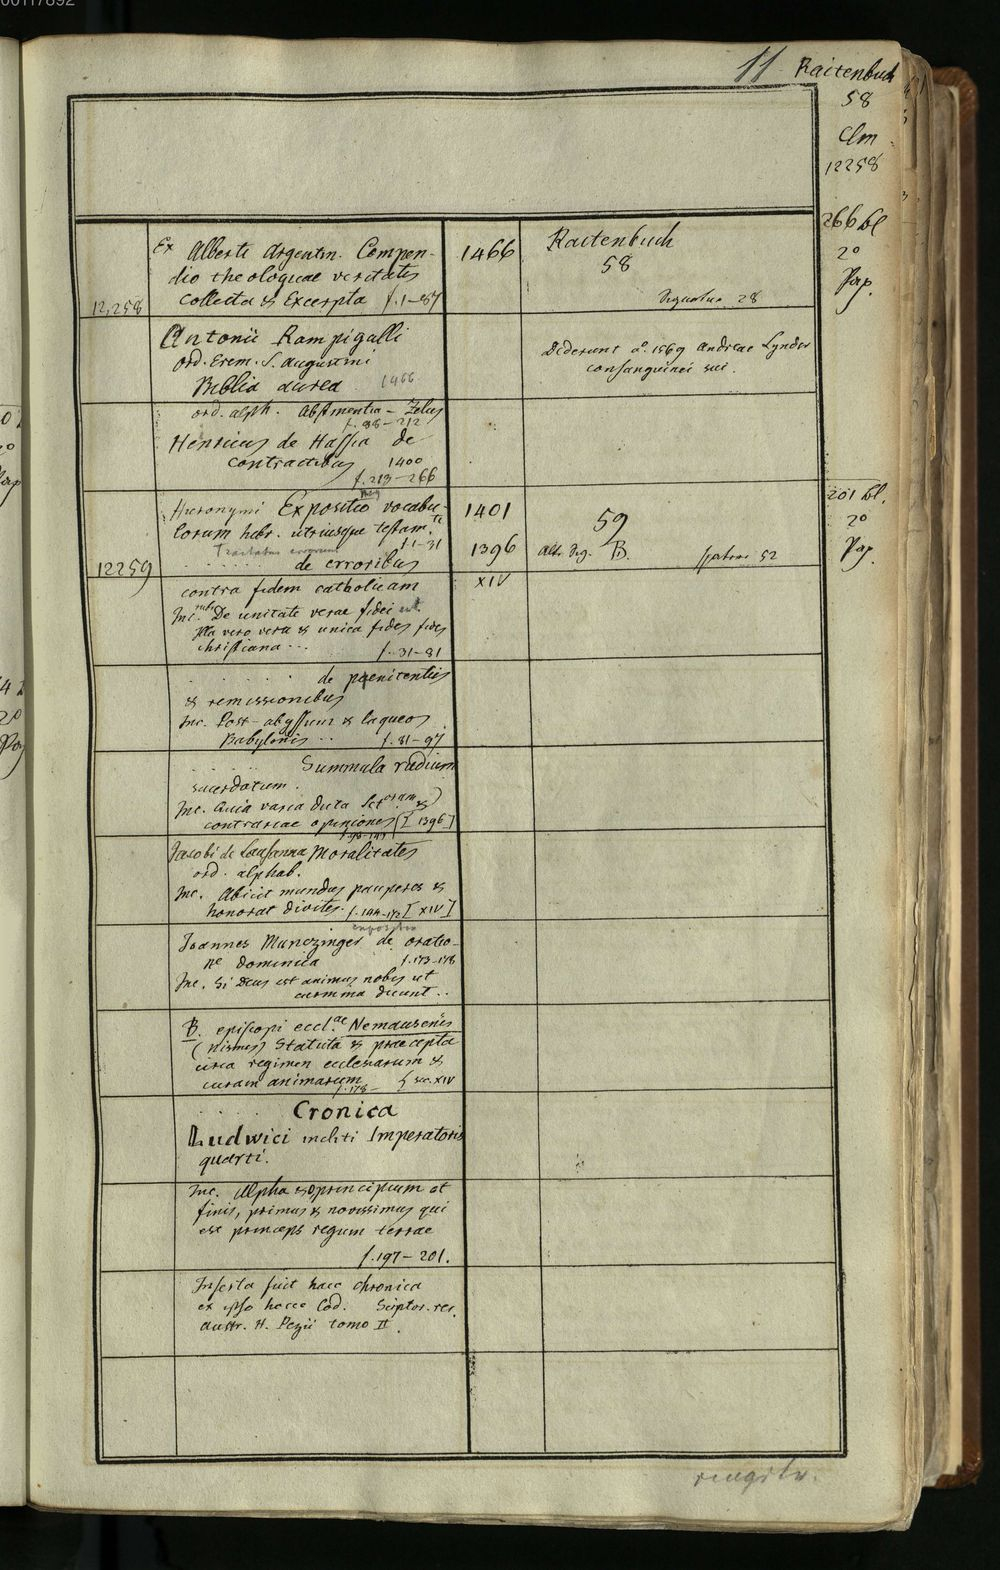 00117892
11 Raitenbuch
58
Clm
12258
266 bl
2º
Pap.
Ex Alberti Argentin. Compen-
dio theologicae veritatis
Collecta & Excerpta f. 1-87
12,258
1466
Raitenbuch
58
28
Antonii Rampigalli
ord. Erem. S. Augustini
Biblia aurea 1466
Dederunt aº. 1569 Andreae Lynder
consanguinei sui.
ord. alph. Abstinentia - Zelus
f. 88-212
Henricus de Hassia de
contractibus 1400
f. 213-266
Hieronymi Expositio vocabu-
lorum hebr. utriusque testam.ti
f. 1-31
Tractatus errorum
de erroribus
12259
1401
1396
59
alt. Sig. B.
52
201 bl.
2º
Pap.
contra fidem catholicam
XIV
Inc. De unitate verae fidei
Illa vero vera & unica fides fides
christiana ... f. 31-81
de poenitentiis
& remissionibus
Inc. Post abyssum & laqueos
Babylonis .. f. 81-97
Summula rudium
sacerdotum.
Inc. Quia varia dicta &
contrariae opiniones [1396]
Jacobi de Lausanna Moralitates
ord. alphab.
Inc. Abicit mundus pauperes &
honorat divites. f. 144-172 [XIV]
expositio
Joannes Munczinger de oratio-
ne dominica f. 173-178
Inc. Si Deus est animus nobis ut
carmina dicunt ..
B. episcopi eccl.ae Nemausenis
(Nismes) Statuta & praecepta
circa regimen ecclesiarum &
curam animarum f. 178- sec. XIV
Cronica
Ludwici incliti Imperatoris
quarti.
Inc. Alpha & O principium et
finis, primus & novissimus qui
est princeps regum terrae
f. 197-201.
Inserta fuit haec chronica
ex ipso hocce Cod. Scriptor. rer.
austr. H. Pezii tomo II.